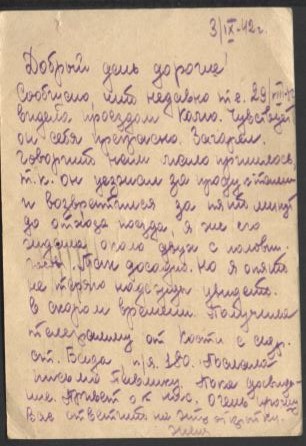 3/IX-42 г.
Добрый день дорогие!
Сообщаю, что недавно т.е. 29/VIII-42
видела проездом Костю. Чувствует
он себя прекрасно. Загорел.
Говорить нам мало пришлось
т.к. он уезжал за продуктами
и возвратился за пять минут
до отхода поезда, я же его
ждала около двух с полови-
ной. Так досадно. Но я опять
не теряю надежды увидеть
в скором времени. Получила
телеграмму от Кости с
ст. п/я. 180. Послала
письмо Павлику. Пока досвида-
ние. Привет о к нас. Очень прошу
Вас ответить на эту открытку.